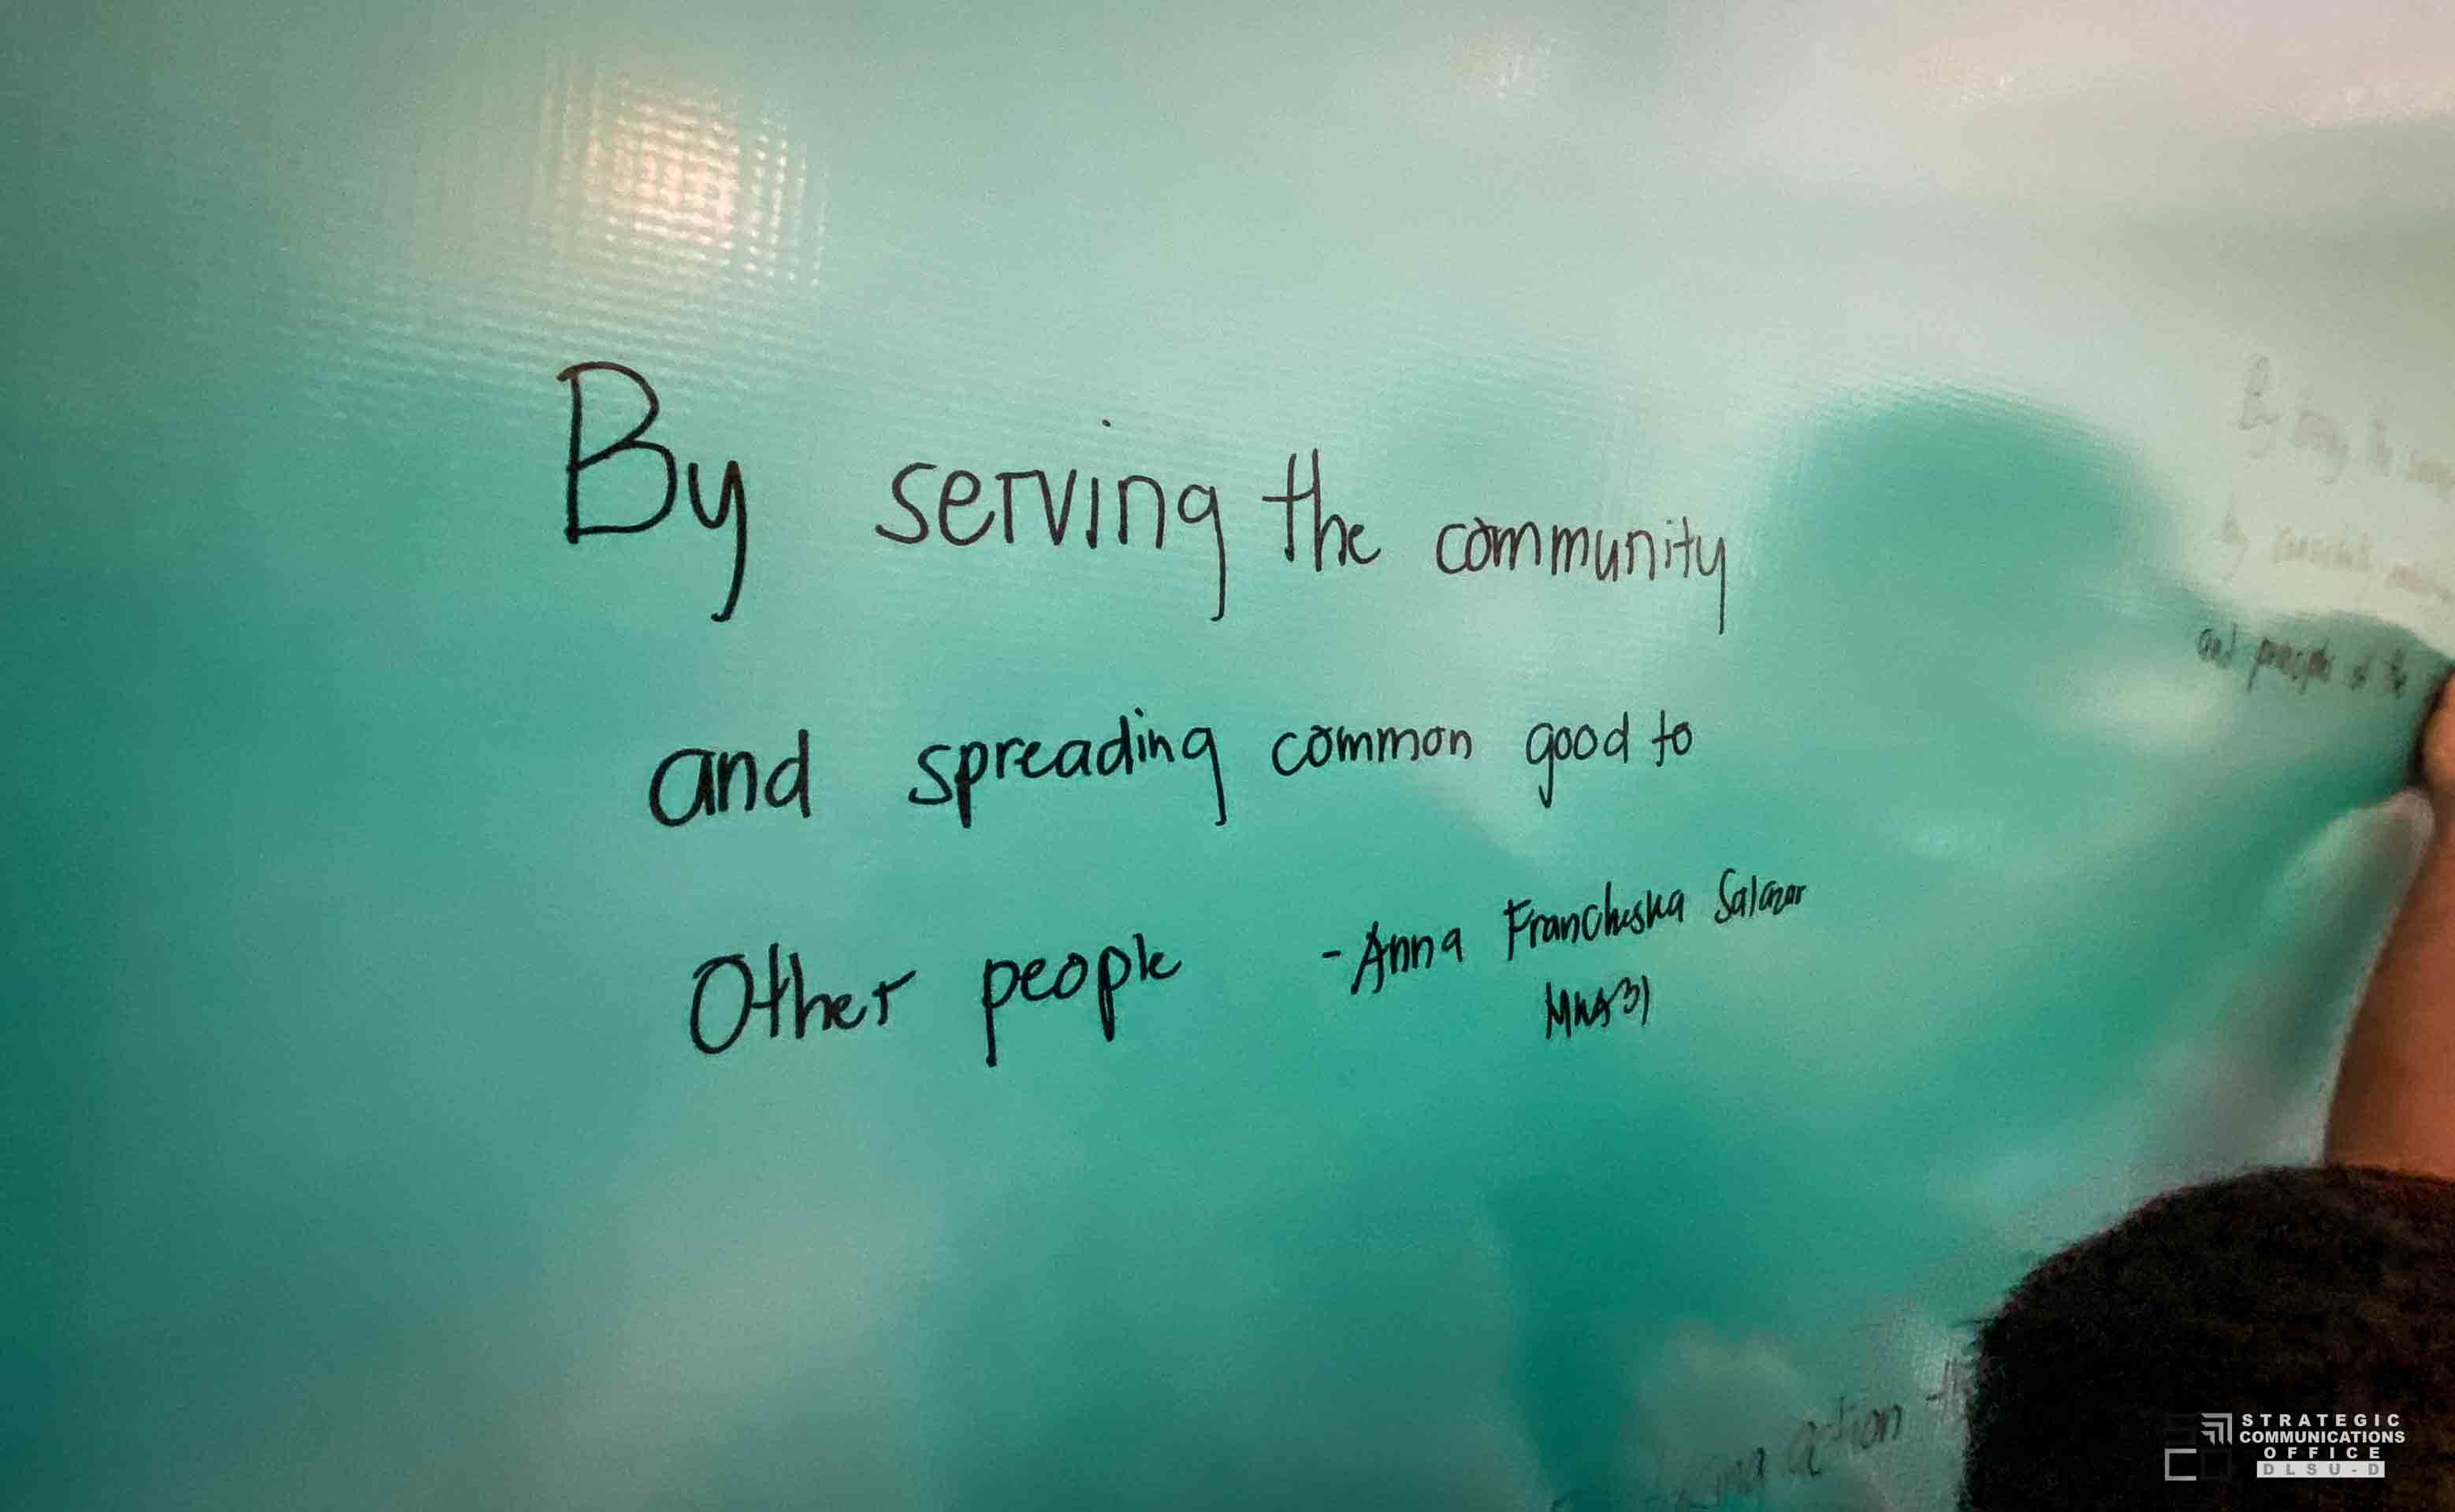 By serving the community
and spreading common good to
Other people - Anna Francheska Salazar
and of the
action
STRATEGIC
COMMUNICATIONS
OFFICE
DLSU-D